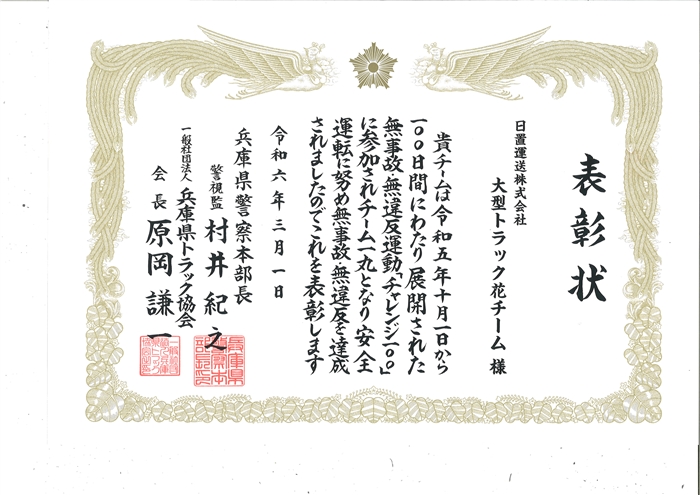 表彰状
日置運送株式会社
大型トラック花チーム 様
貴チームは令和五年十月一日から
一〇〇日間にわたり展開された
無事故・無違反運動「チャレンジ一〇〇」
に参加されチーム一丸となり安全
運転に努め無事故・無違反を達成
されましたのでこれを表彰します
令和六年三月一日
兵庫県警察本部長
警視監 村井紀之
一般社団法人 兵庫県トラック協会
会長 原岡謙一